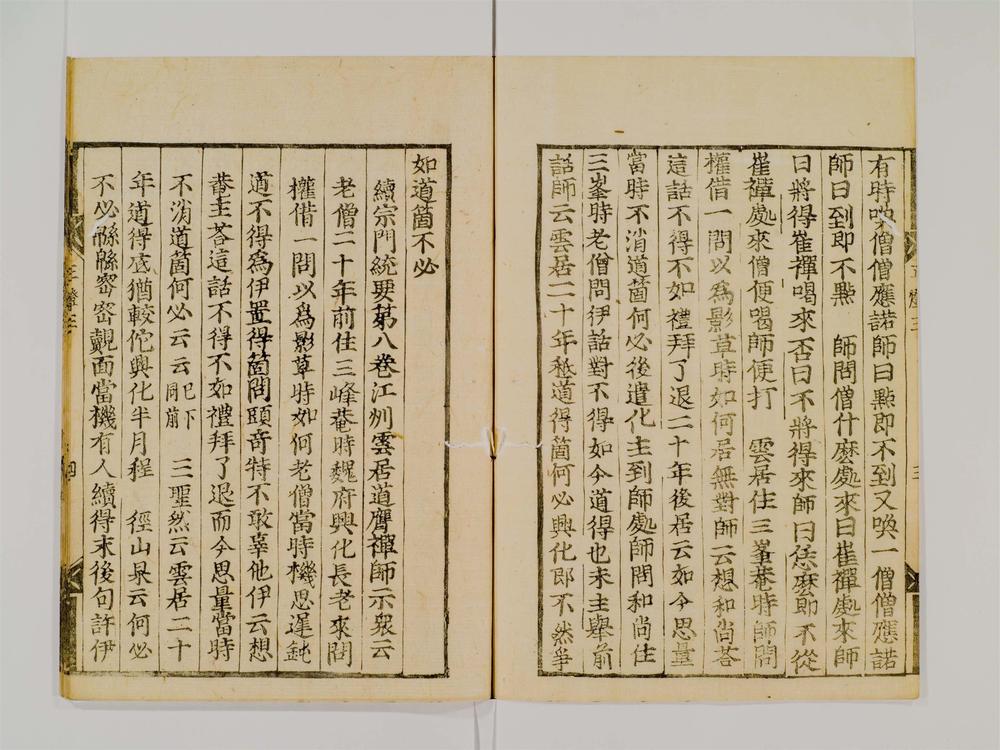 有時喚僧僧應諾師曰點即不到又喚一僧僧應諾
師曰到即不點　師問僧什麼處來曰崔禪處來師
曰將得崔禪喝來否曰不將得來師曰恁麼即不從
崔禪處來僧便喝師便打　雲居住三峯菴時師問
權借一問以爲影草時如何居無對師云想和尚荅
這話不得不如禮拜了退二十年後居云如今思量
當時不消道箇何必後遣化主到師處師問和尚住
三峯時老僧問伊話對不得如今道得也未主舉前
話師云雲居二十年秪道得箇何必興化即不然爭
如道箇不必
續宗門統要第八卷江州雲居道膺禪師示衆云
老僧二十年前住三峰菴時魏府興化長老來問
權借一問以爲影草時如何老僧當時機思遲鈍
道不得爲伊置得箇問頭奇特不敢辜他伊云想
菴主荅這話不得不如禮拜了退而今思量當時
不消道箇何必云云已下同前　三聖然云雲居二十
年道得底猶較佗興化半月程　徑山杲云何必
不必緜緜密密覿面當機有人續得末後句許伊
四